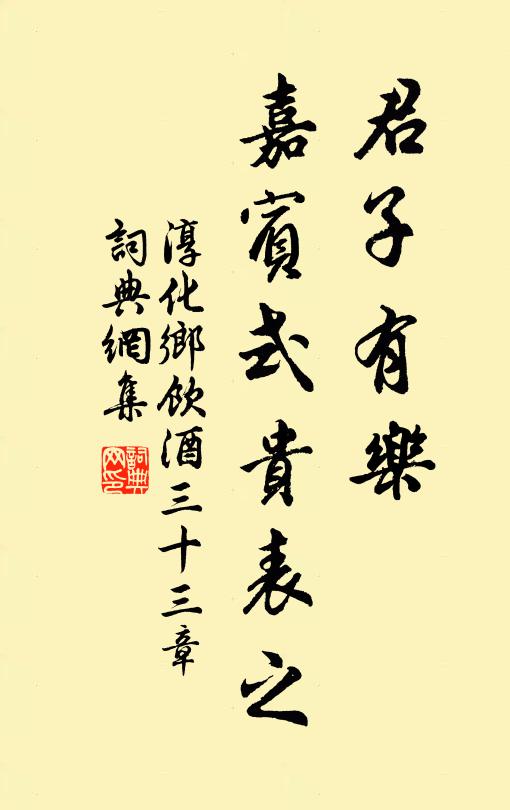 君子有樂
嘉賓式貴表之
淳化鄉飲酒三十三章
詞典網集
詞典網印